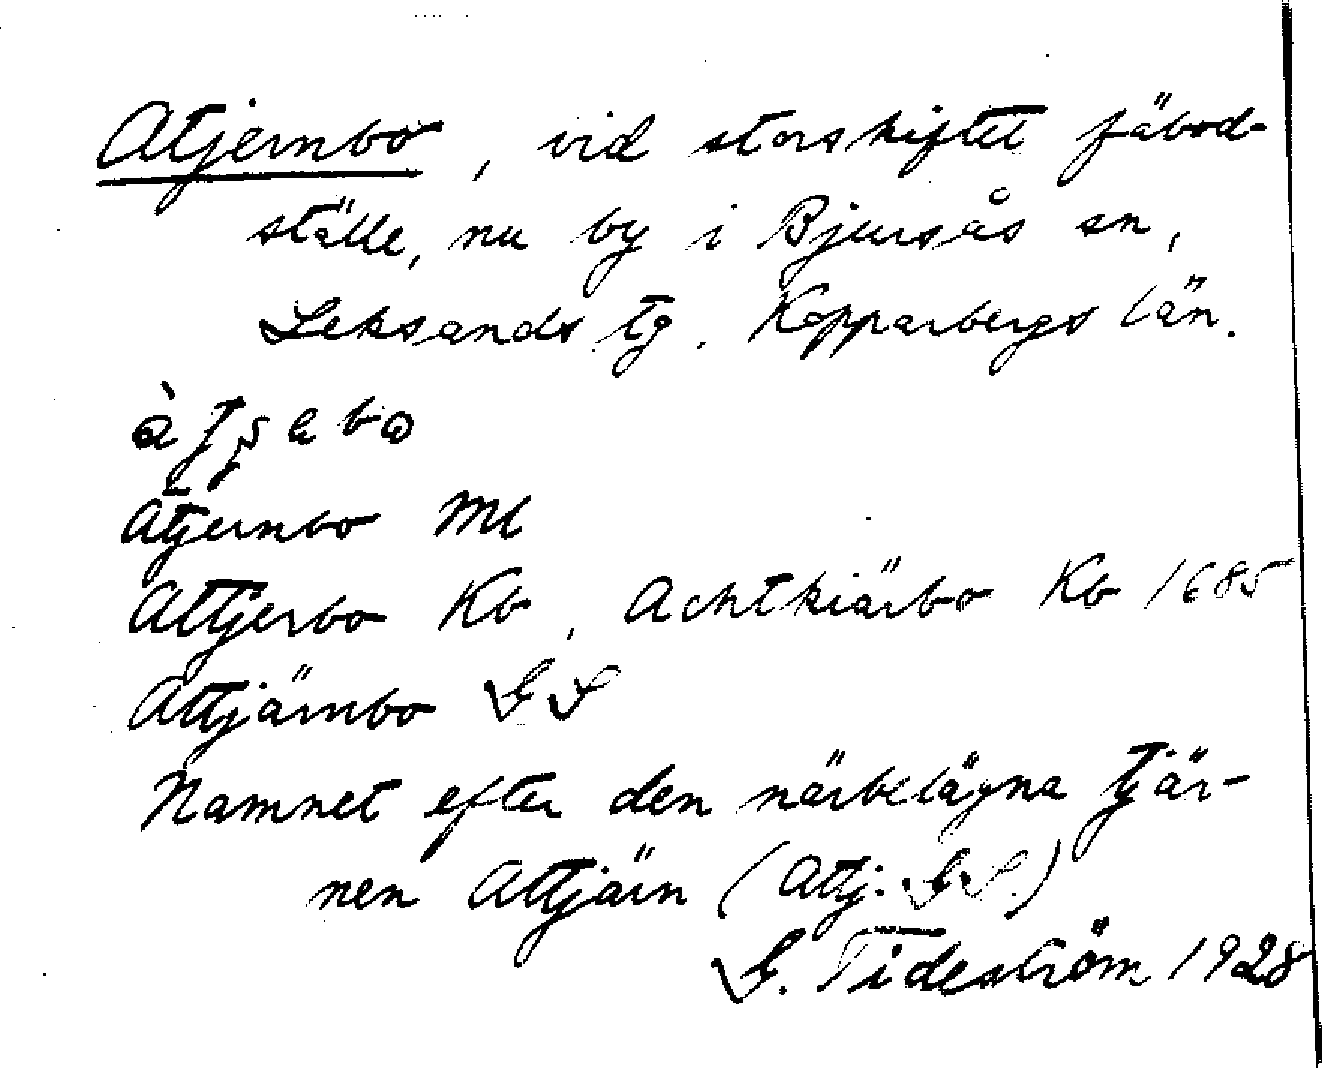 Atjernbo, vid storskiftet fäbod-
ställe, nu by i Bjursås sn,
Leksands tg. Kopparbergs län.
Atjernbo Ml
Attjerbo Kb, Achtkiärbo Kb 1685
Attjärnbo GS
Namnet efter den närbelägna tjär-
nen Attjärn (Attj. GS.)
G. Tideström 1928